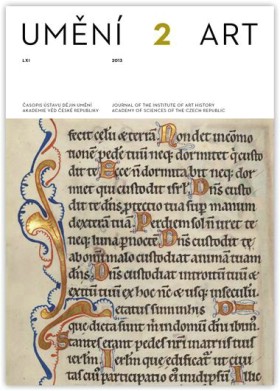 UMĚNÍ 2 ART
LXI 2013
ČASOPIS ÚSTAVU DĚJIN UMĚNÍ
AKADEMIE VĚD ČESKÉ REPUBLIKY
JOURNAL OF THE INSTITUTE OF ART HISTORY
ACADEMY OF SCIENCES OF THE CZECH REPUBLIC
fecit celũ & terrã. Non det incõmo
tionẽ pedẽ tuũ neq; dormitet q custo
dit te. Ecce ñ dormitabit neq; dor
miet qui custodit isrl. Dñs custo
dit te dñs protectio tua sup manum
dexterã tuã. Per diem sol ñ uret te
neq; luna p noctẽ. Dñs custodit te
ab omi malo custodiat animã tuam
dñs. Dñs custodiat introitũ tuũ & ex
itũ tuũ ex hoc nc & usq; in seculũ.
Letatus sum in his
que dicta sunt m in domum dñi ibim;
Stantes erant pedes nri in atriis tuis
ierlm Ierlm que edificat ut ciui
tas cui; participatio ei; in idipsũ